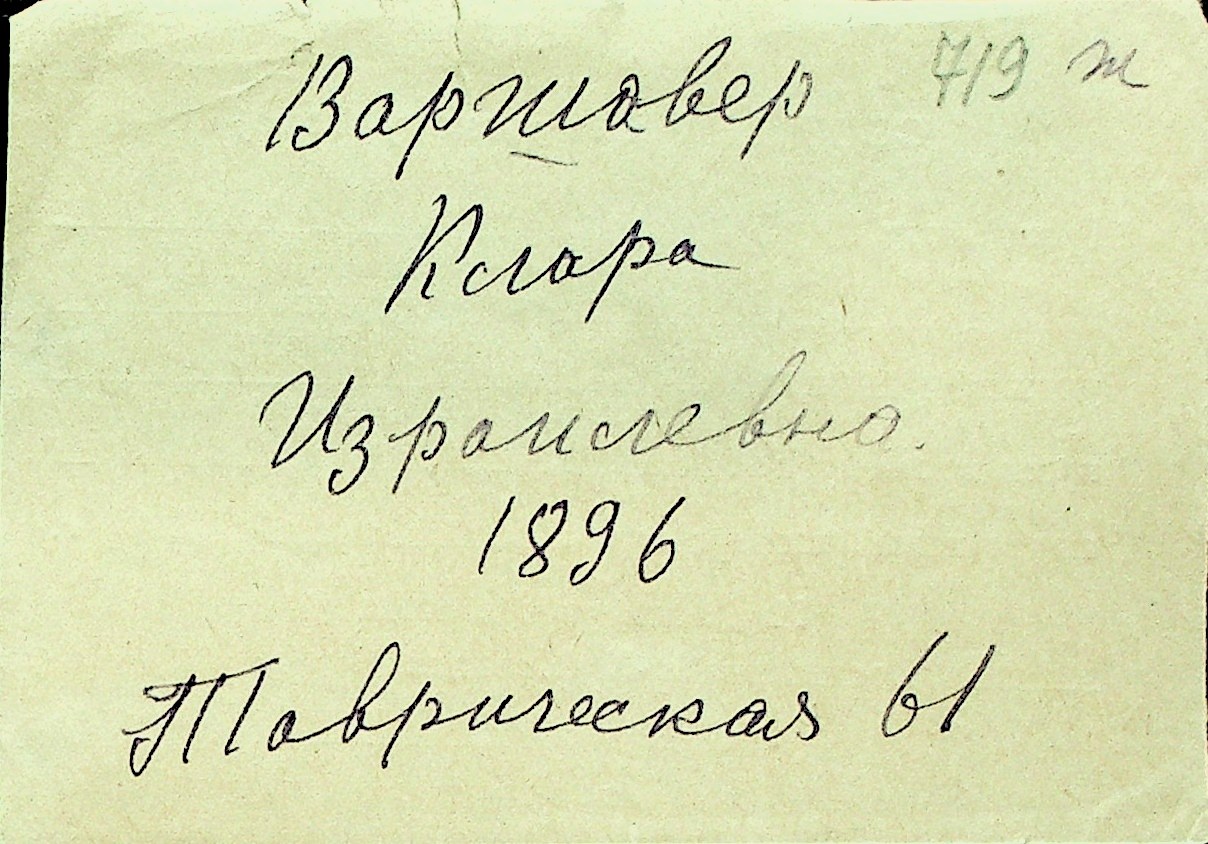 Варшавер 719 ж
Клара
Израилевна.
1896
Таврическая 61